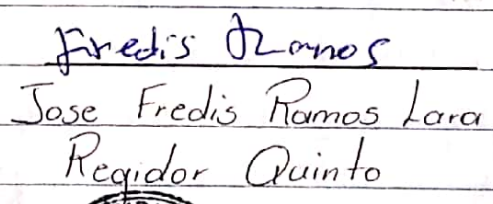 Fredis Ramos
Jose Fredis Ramos Lara
Regidor Quinto